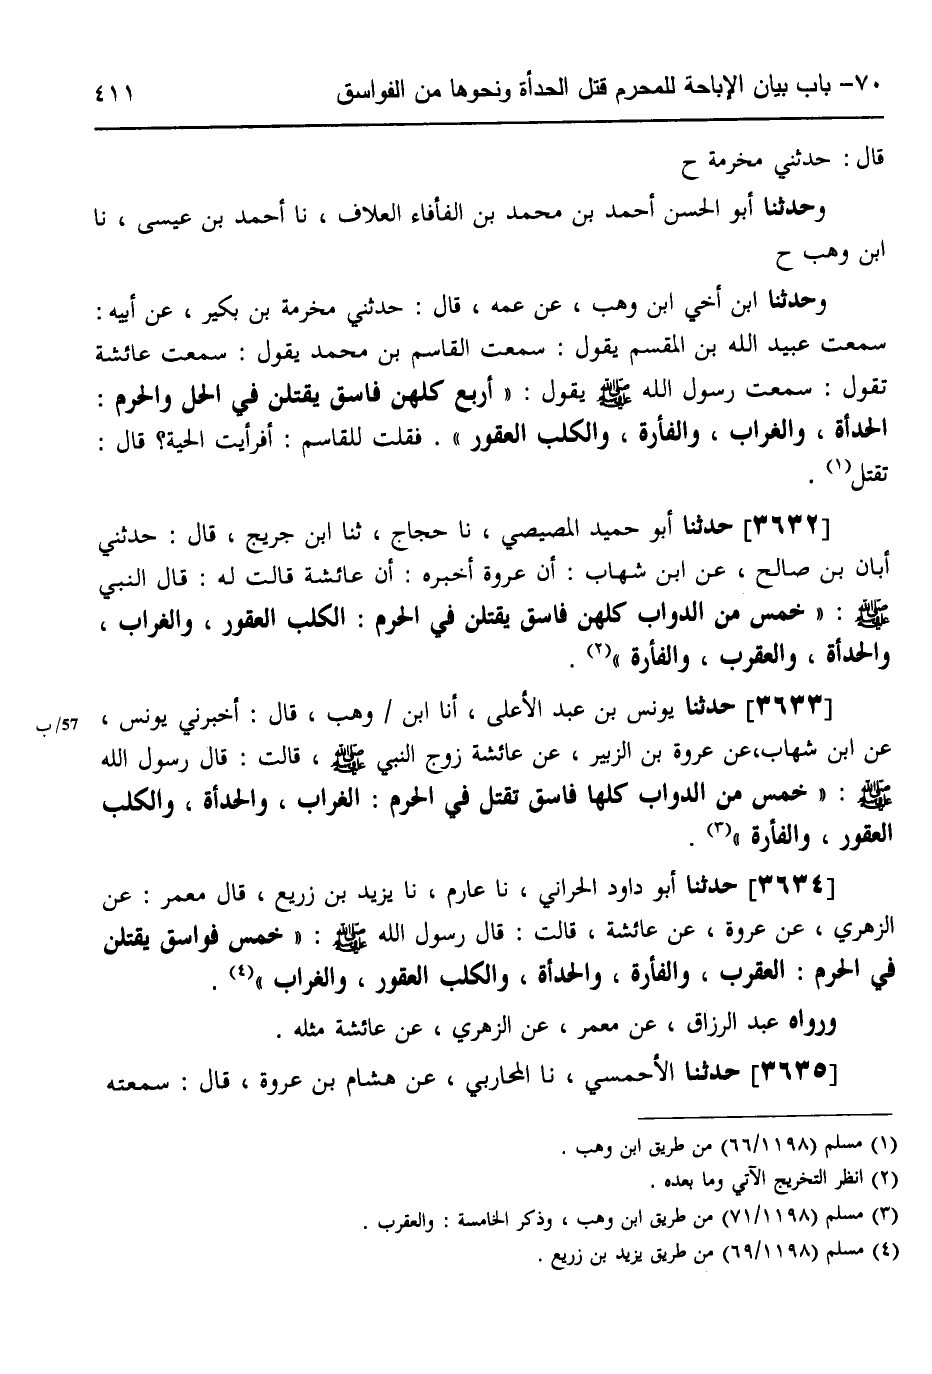 ٧٠- باب بيان الإباحة للمحرم قتل الحدأة ونحوها من الفواسق ٤١١
قال : حدثني مخرمة ح
وحدثنا أبو الحسن أحمد بن محمد بن الفأفاء العلاف ، نا أحمد بن عيسى ، نا
ابن وهب ح
وحدثنا ابن أخي ابن وهب ، عن عمه ، قال : حدثني مخرمة بن بكير ، عن أبيه :
سمعت عبيد الله بن المقسم يقول : سمعت القاسم بن محمد يقول : سمعت عائشة
تقول : سمعت رسول الله ﷺ يقول : « أربع كلهن فاسق يقتلن في الحل والحرم :
الحدأة ، والغراب ، والفأرة ، والكلب العقور » . فقلت للقاسم : أفرأيت الحية؟ قال :
تقتل(١) .
[٣٦٣٢] حدثنا أبو حميد المصيصي ، نا حجاج ، ثنا ابن جريج ، قال : حدثني
أبان بن صالح ، عن ابن شهاب : أن عروة أخبره : أن عائشة قالت له : قال النبي
ﷺ : « خمس من الدواب كلهن فاسق يقتلن في الحرم : الكلب العقور ، والغراب ،
والحدأة ، والعقرب ، والفأرة »(٢) .
[٣٦٣٣] حدثنا يونس بن عبد الأعلى ، أنا ابن / وهب ، قال : أخبرني يونس ،
57/ب
عن ابن شهاب،عن عروة بن الزبير ، عن عائشة زوج النبي ﷺ ، قالت : قال رسول الله
ﷺ : « خمس من الدواب كلها فاسق تقتل في الحرم : الغراب ، والحدأة ، والكلب
العقور ، والفأرة »(٣) .
[٣٦٣٤] حدثنا أبو داود الحراني ، نا عارم ، نا يزيد بن زريع ، قال معمر : عن
الزهري ، عن عروة ، عن عائشة ، قالت : قال رسول الله ﷺ : « خمس فواسق يقتلن
في الحرم : العقرب ، والفأرة ، والحدأة ، والكلب العقور ، والغراب »(٤) .
ورواه عبد الرزاق ، عن معمر ، عن الزهري ، عن عائشة مثله .
[٣٦٣٥] حدثنا الأحمسي ، نا المحاربي ، عن هشام بن عروة ، قال : سمعته
(١) مسلم (٦٦/١١٩٨) من طريق ابن وهب .
(٢) انظر التخريج الآتي وما بعده .
(٣) مسلم (٧١/١١٩٨) من طريق ابن وهب ، وذكر الخامسة : والعقرب .
(٤) مسلم (٦٩/١١٩٨) من طريق يزيد بن زريع .